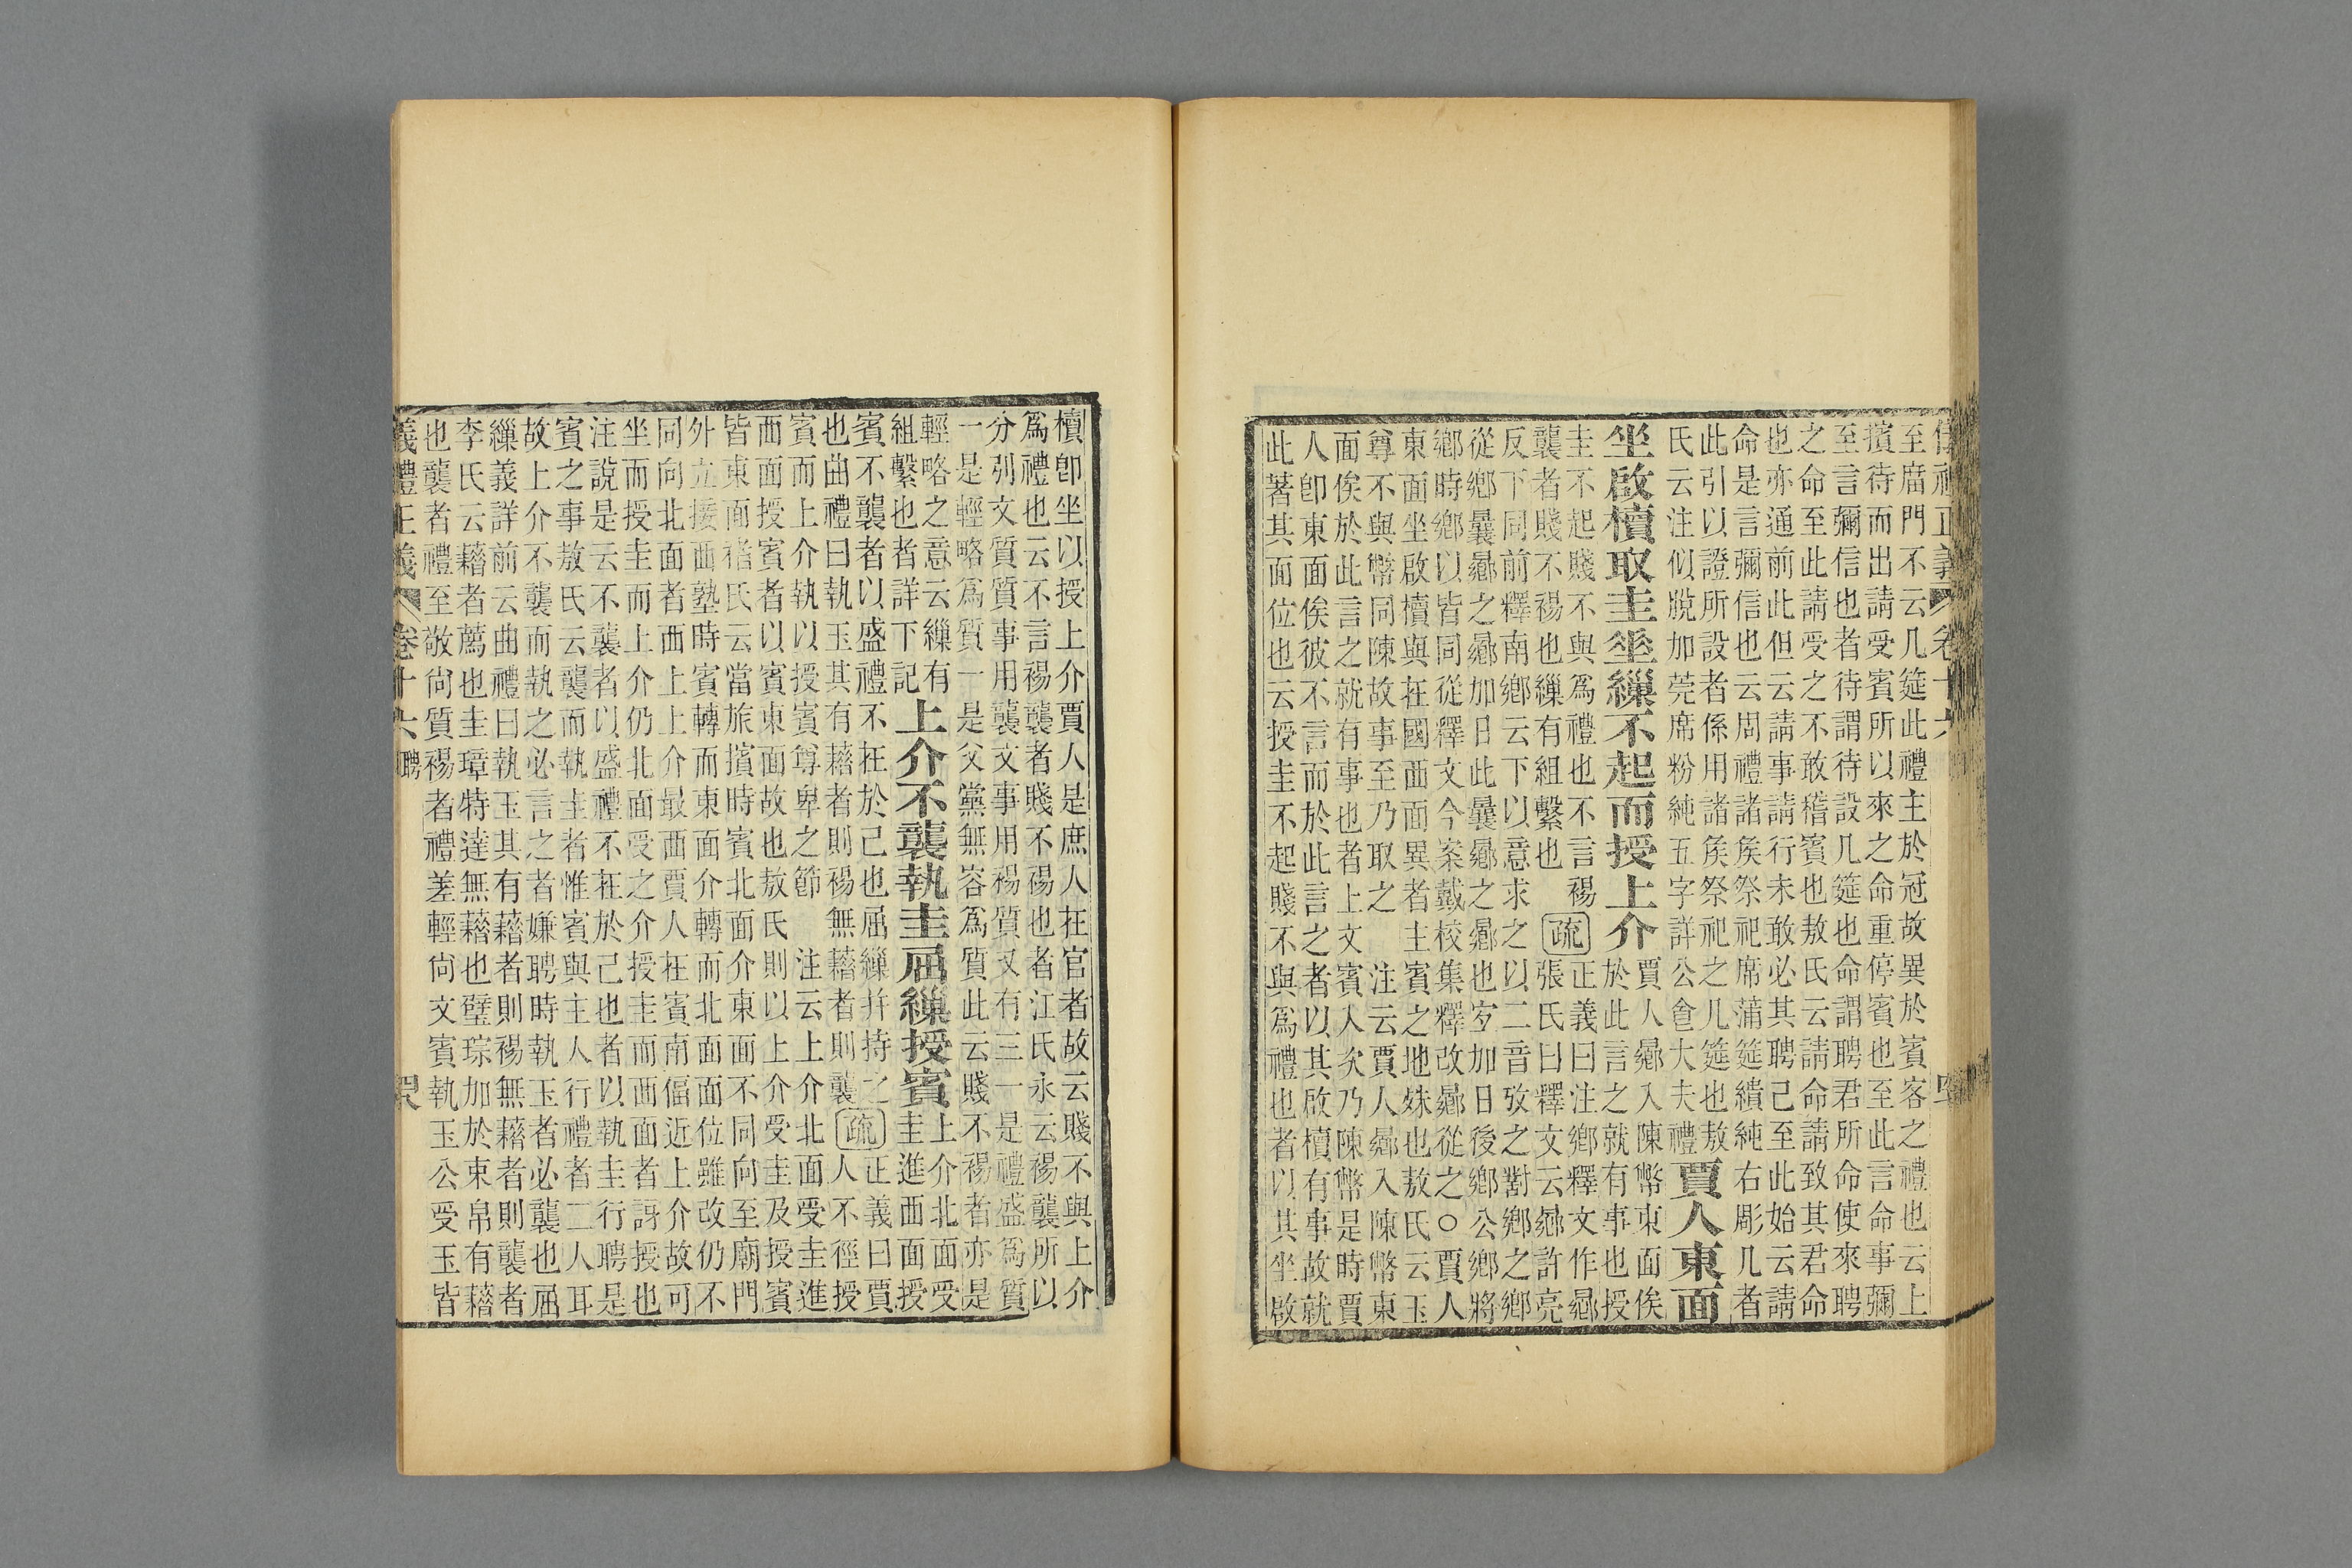 至𢊍門不云几筵此禮主於冠故異於賓客之禮也云上
擯待而出請受賓所以來之命重停賓也至此言命事彌
至言彌信也者待謂待設几筵也命謂聘君所命使來聘
之命至此請受之不敢稽賓也敖氏云請命請致其君命
也亦通前此但云請事請行未敢必其聘己至此始云請
命是言彌信也云周禮諸矦祭祀席蒲筵繢純右彫几者
此引以證所設者係用諸矦祭祀之几筵也敖
氏云注似脫加莞席粉純五字詳公食大夫禮
賈人東面
坐啟櫝取圭坐繅不起而授上介
賈人鄉入陳幣東面俟
於此言之就有事也授
圭不起賤不與爲禮也不言裼
襲者賤不裼也繅有組繫也
疏
正義曰注鄉釋文作曏
張氏曰釋文云曏許亮
反下同前釋南鄉云下以意求之以二音攷之對鄉之鄉
從鄉曩曏之曏加日此曩曏之曏也宜加日後鄉公鄉將
鄉時鄉以皆同從釋文今案戴校集釋改曏從之○賈人
東面坐啟櫝與在國西面異者主賓之地殊也敖氏云玉
尊不與幣同陳故事至乃取之 注云賈人曏入陳幣東
面俟於此言之就有事也者上文賓入次乃陳幣是時賈
人卽東面俟彼不言而於此言之者以其啟櫝有事故就
此著其面位也云授圭不起賤不與爲禮也者以其坐啟
櫝卽坐以授上介賈人是庶人在官者故云賤不與上介
爲禮也云不言裼襲者賤不裼也者江氏永云裼襲所以
分别文質質事用襲文事用裼質又有三一是禮盛爲質
一是輕略爲質一是父黨無容爲質此云賤不裼者亦是
輕略之意云繅有
組繫也者詳下記
上介不襲執圭屈繅授賓
上介北面受
圭進西面授
賓不襲者以盛禮不在於己也屈繅幷持之
也曲禮曰執玉其有藉者則裼無藉者則襲
疏
正義曰賈
人不徑授
賓而上介執以授賓尊卑之節 注云上介北面受圭進
西面授賓者以賓東面故也敖氏則以上介受圭及授賓
皆東面褚氏云當旅擯時賓北面介東面不同向至廟門
外立接西塾時賓轉而東面介轉而北面面位雖改仍不
同向北面者西上上介最西賈人在賓南偪近上介故可
坐而授圭而上介仍北面受之介授圭而西面者訝授也
注說是云不襲者以盛禮不在於己也者以執圭行聘是
賓之事敖氏云襲而執圭者惟賓與主人行禮者二人耳
故上介不襲而執之必言之者嫌聘時執玉者必襲也屈
繅義詳前云曲禮曰執玉其有藉者則裼無藉者則襲者
李氏云藉者薦也圭璋特達無藉也璧琮加於束帛有藉
也襲者禮至敬尙質裼者禮差輕尙文賓執玉公受玉皆